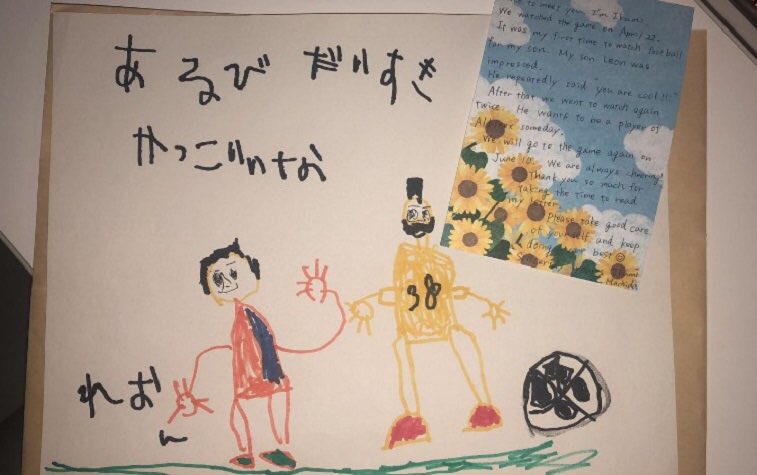 あるび だいすき
かっこいいなお
れおん
38
to meet you. I'm
We watched the game on April 22.
It was my first time to watch football
for my son. My son Leon was
impressed.
He repeatedly said "you are cool!!"
After that we went to watch again
twice. He wants to be a player of
someday.
We will go to the game again on
June 10. We are always cheering!
Thank you so much for
taking the time to read
my letter.
Please take good care
of yourself and keep
doing your best ☺